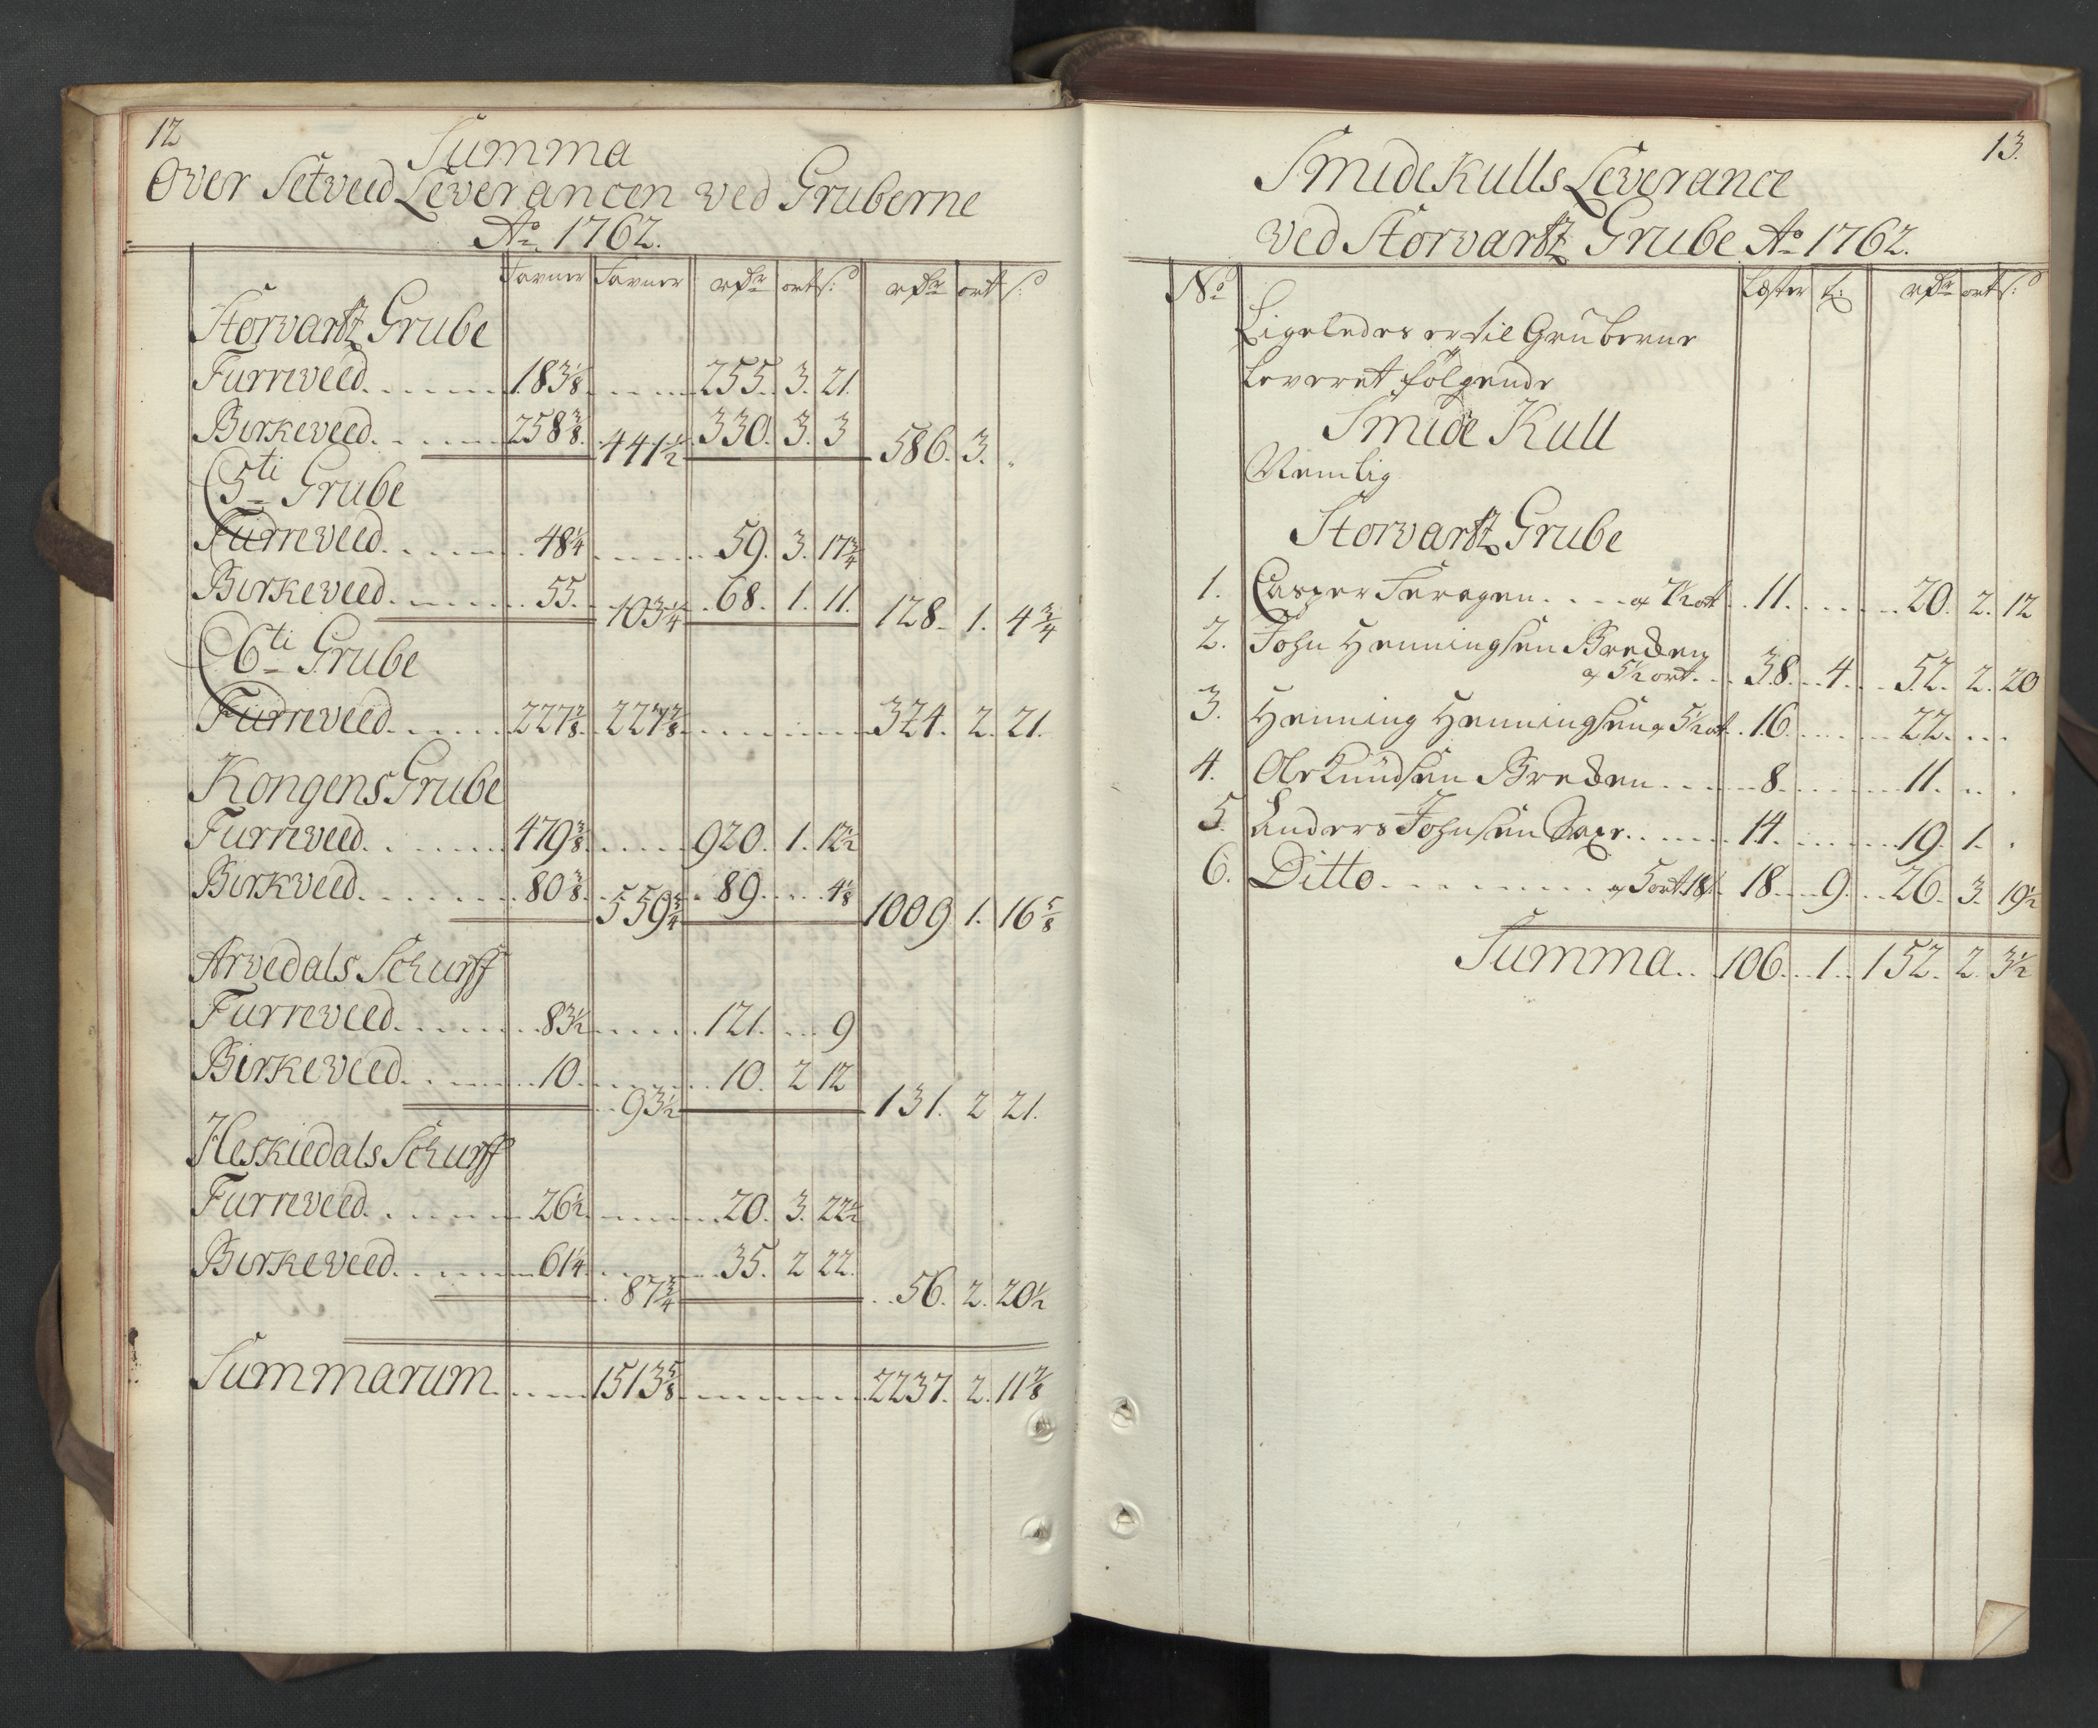 12
Summa
Over Setveed Leverancen ved Gruberne
Ao 1762.
Favner Favner rdr ort s: rdr ort s:
Storvartz Grube
Furreveed 183 1/8 255. 3. 21.
Birkeveed 258 3/8 441 1/2 330. 3. 3 586. 3.
5ti Grube
Furreveed 48 1/4 59. 3. 17 3/4
Birkeveed 55 103 1/4 68. 1. 11. 128. 1. 4 3/4
6ti Grube
Furreveed 227 2/8 227 2/8 324. 2. 21.
Kongens Grube
Furreveed 479 3/8 920. 1. 12 1/2
Birkveed 80 3/8 559 3/4 89 4 1/8 1009 1. 16 5/8
Arvedals Schurff
Furreveed 83 1/2 121. 9
Birkeveed 10 93 1/2 10. 2 12 131. 2 21.
Heskiedals Schurff
Furreveed 26 1/2 20. 3. 22 1/2
Birkeveed 61 1/4 87 3/4 35. 2 22. 56. 2. 20 1/2
Summarum 1513 5/8 2237. 2. 11 7/8
13.
Smidekulls Leverance
ved Storvartz Grube Ao 1762.
No Læster t: rdr ort s:
Ligeledes er til Gruberne
leveret følgende
Smide Kull
Nemlig
Storvartz Grube
1. Casper Feragen a 7 1/2 ort 11. 20. 2. 12
2. John Henningsen Breden
a 5 1/2 ort. 38. 4. 52. 2. 20
3. Henning Henningsen a 5 1/2 ort 16. 22.
4. Ole Knudsen Breden 8. 11.
5. Anders Johnsen 14. 19. 1.
6. Ditto a 5 ort 18 18 9. 26. 3. 19 1/2
Summa 106. 1. 152. 2. 3 1/2